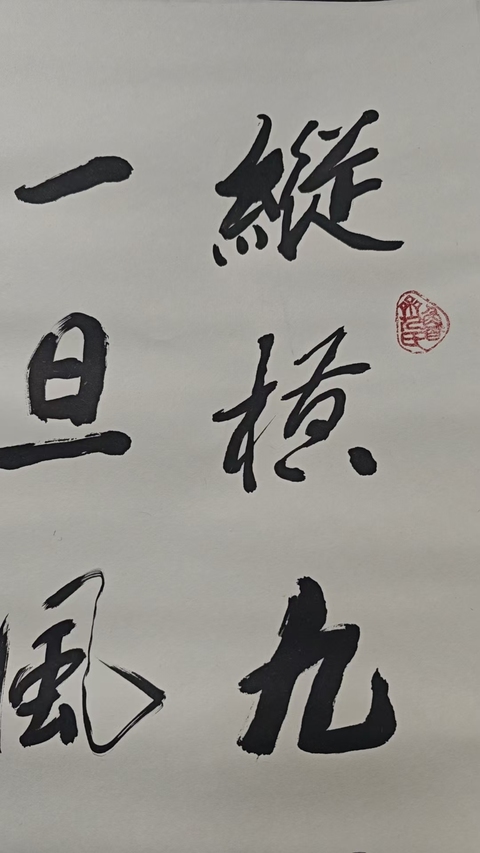 縱橫九
一旦風